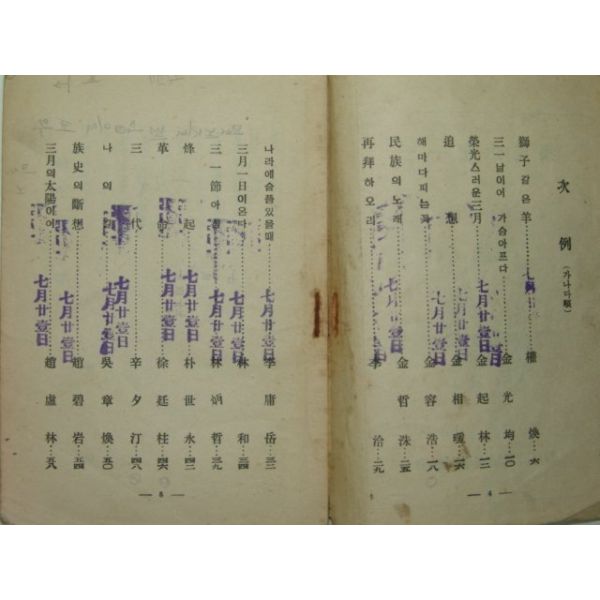 次例 (가나다順)
獅子같은羊……權煥…六
三一날이어 가슴아프다……金光均…一〇
榮光스러운三月 七月廿壹日 金起林…一三
追 七月廿壹日 金相
해마다피는꽃 七月廿壹日 金容浩…一八
民族의노래 七月廿壹日 金哲洙…二五
再拜하오리 七月廿壹日 李洽…二九
— 4 —
나라에슬픔있을때 七月廿壹日 李庸岳…三二
三月一日이온다 七月廿壹日 林和…三四
三一節아 七月廿壹日 林炳哲…三九
烽起 七月廿壹日 朴世永…四二
革命 七月廿壹日 徐廷柱…四六
三代……辛夕汀…四八
나의길 七月廿壹日 吳章煥…五〇
族史의斷想 七月廿壹日 趙碧岩…五四
三月의太陽에여 七月廿壹日 趙虛林…五八
— 5 —